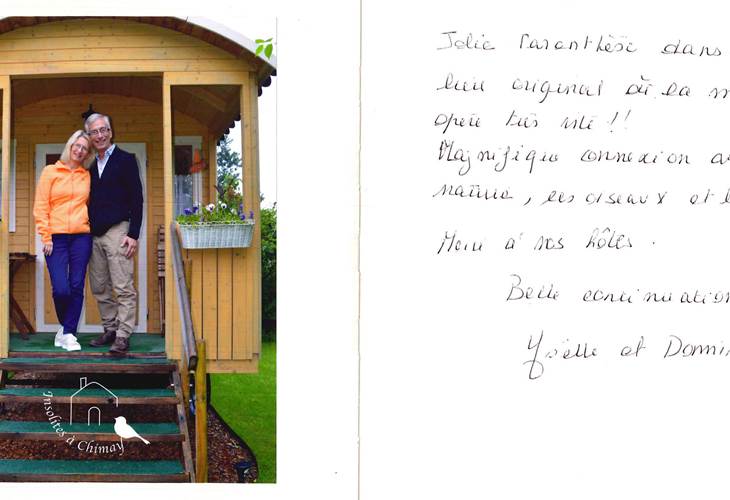 Insolites à Chimay
Jolie Parenthèse dans
lieu original où la m
opère très vite !!
Magnifique connexion a
nature, les oiseaux et l
Merci à nos hôtes.
Belle continuation
et Domini